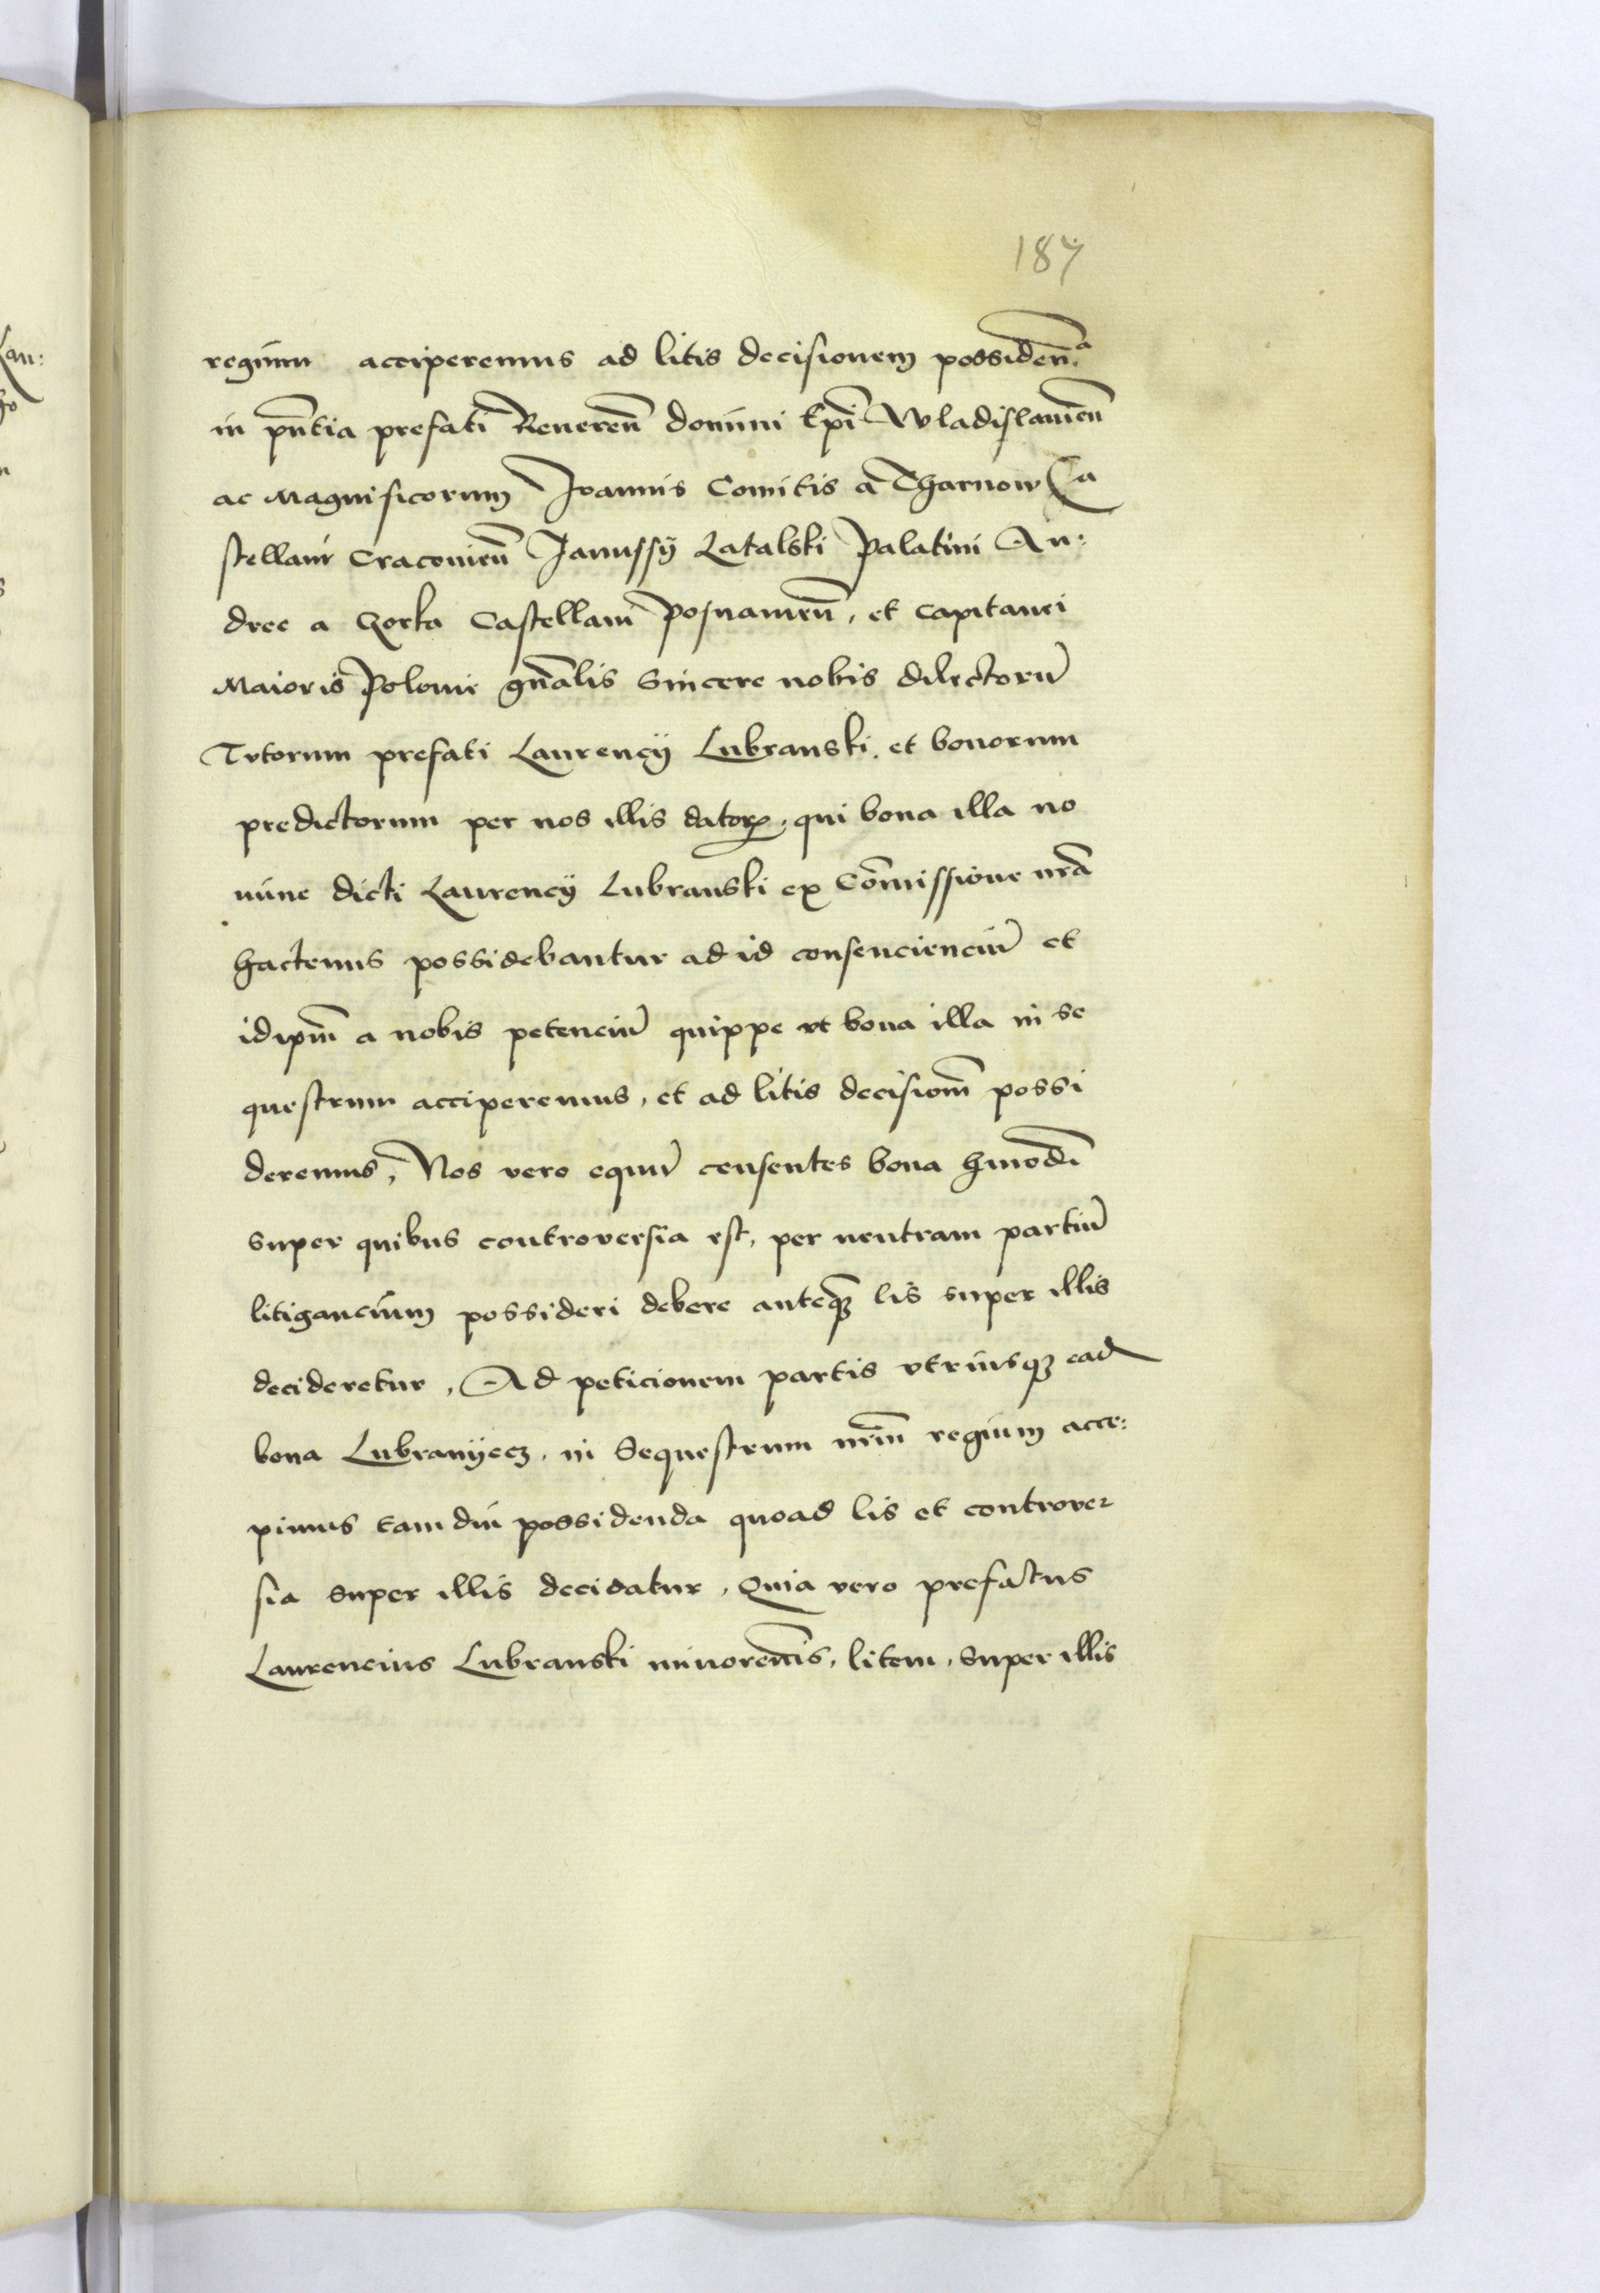 187
regium acciperemus ad litis decisionem possidenᵃ
in pn̄tia prefati Reueren̄ domini Ep̄i Wladislauien̄
ac Magnificorum Joannis Comitis a Tharnow Ca
stellani Cracouien̄ Janussÿ Latalski Palatini An:
dree a Gorka Castellani Posnanien̄, et Capitanei
Maioris Polonie gn̄alis Sincere nobis dilectorū
Tutorum prefati Laurencÿ Lubranski, et bonorum
predictorum per nos illis datorꝝ, qui bona illa no
mine dicti Laurencÿ Lubranski ex Com̄issione nrā
hactenus possidebantur ad id consenciencіū et
idipm̄ a nobis petenciū quippe vt bona illa in se
questrum acciperemus, et ad litis decisionē possi
deremus, Nos vero equū censentes bona hmōdi
super quibus controversia est, per neutram partiū
litigancium possideri debere anteqꝫ lis super illis
decideretur, Ad peticionem partis vtriusqꝫ ead
bona Lubranÿecz, in Sequestrum nrm̄ regium acce:
pimus tam diu possidenda quoad lis et controver
sia super illis decidatur, Quia vero prefatus
Laurencius Lubranski minorennis, litem, super illis